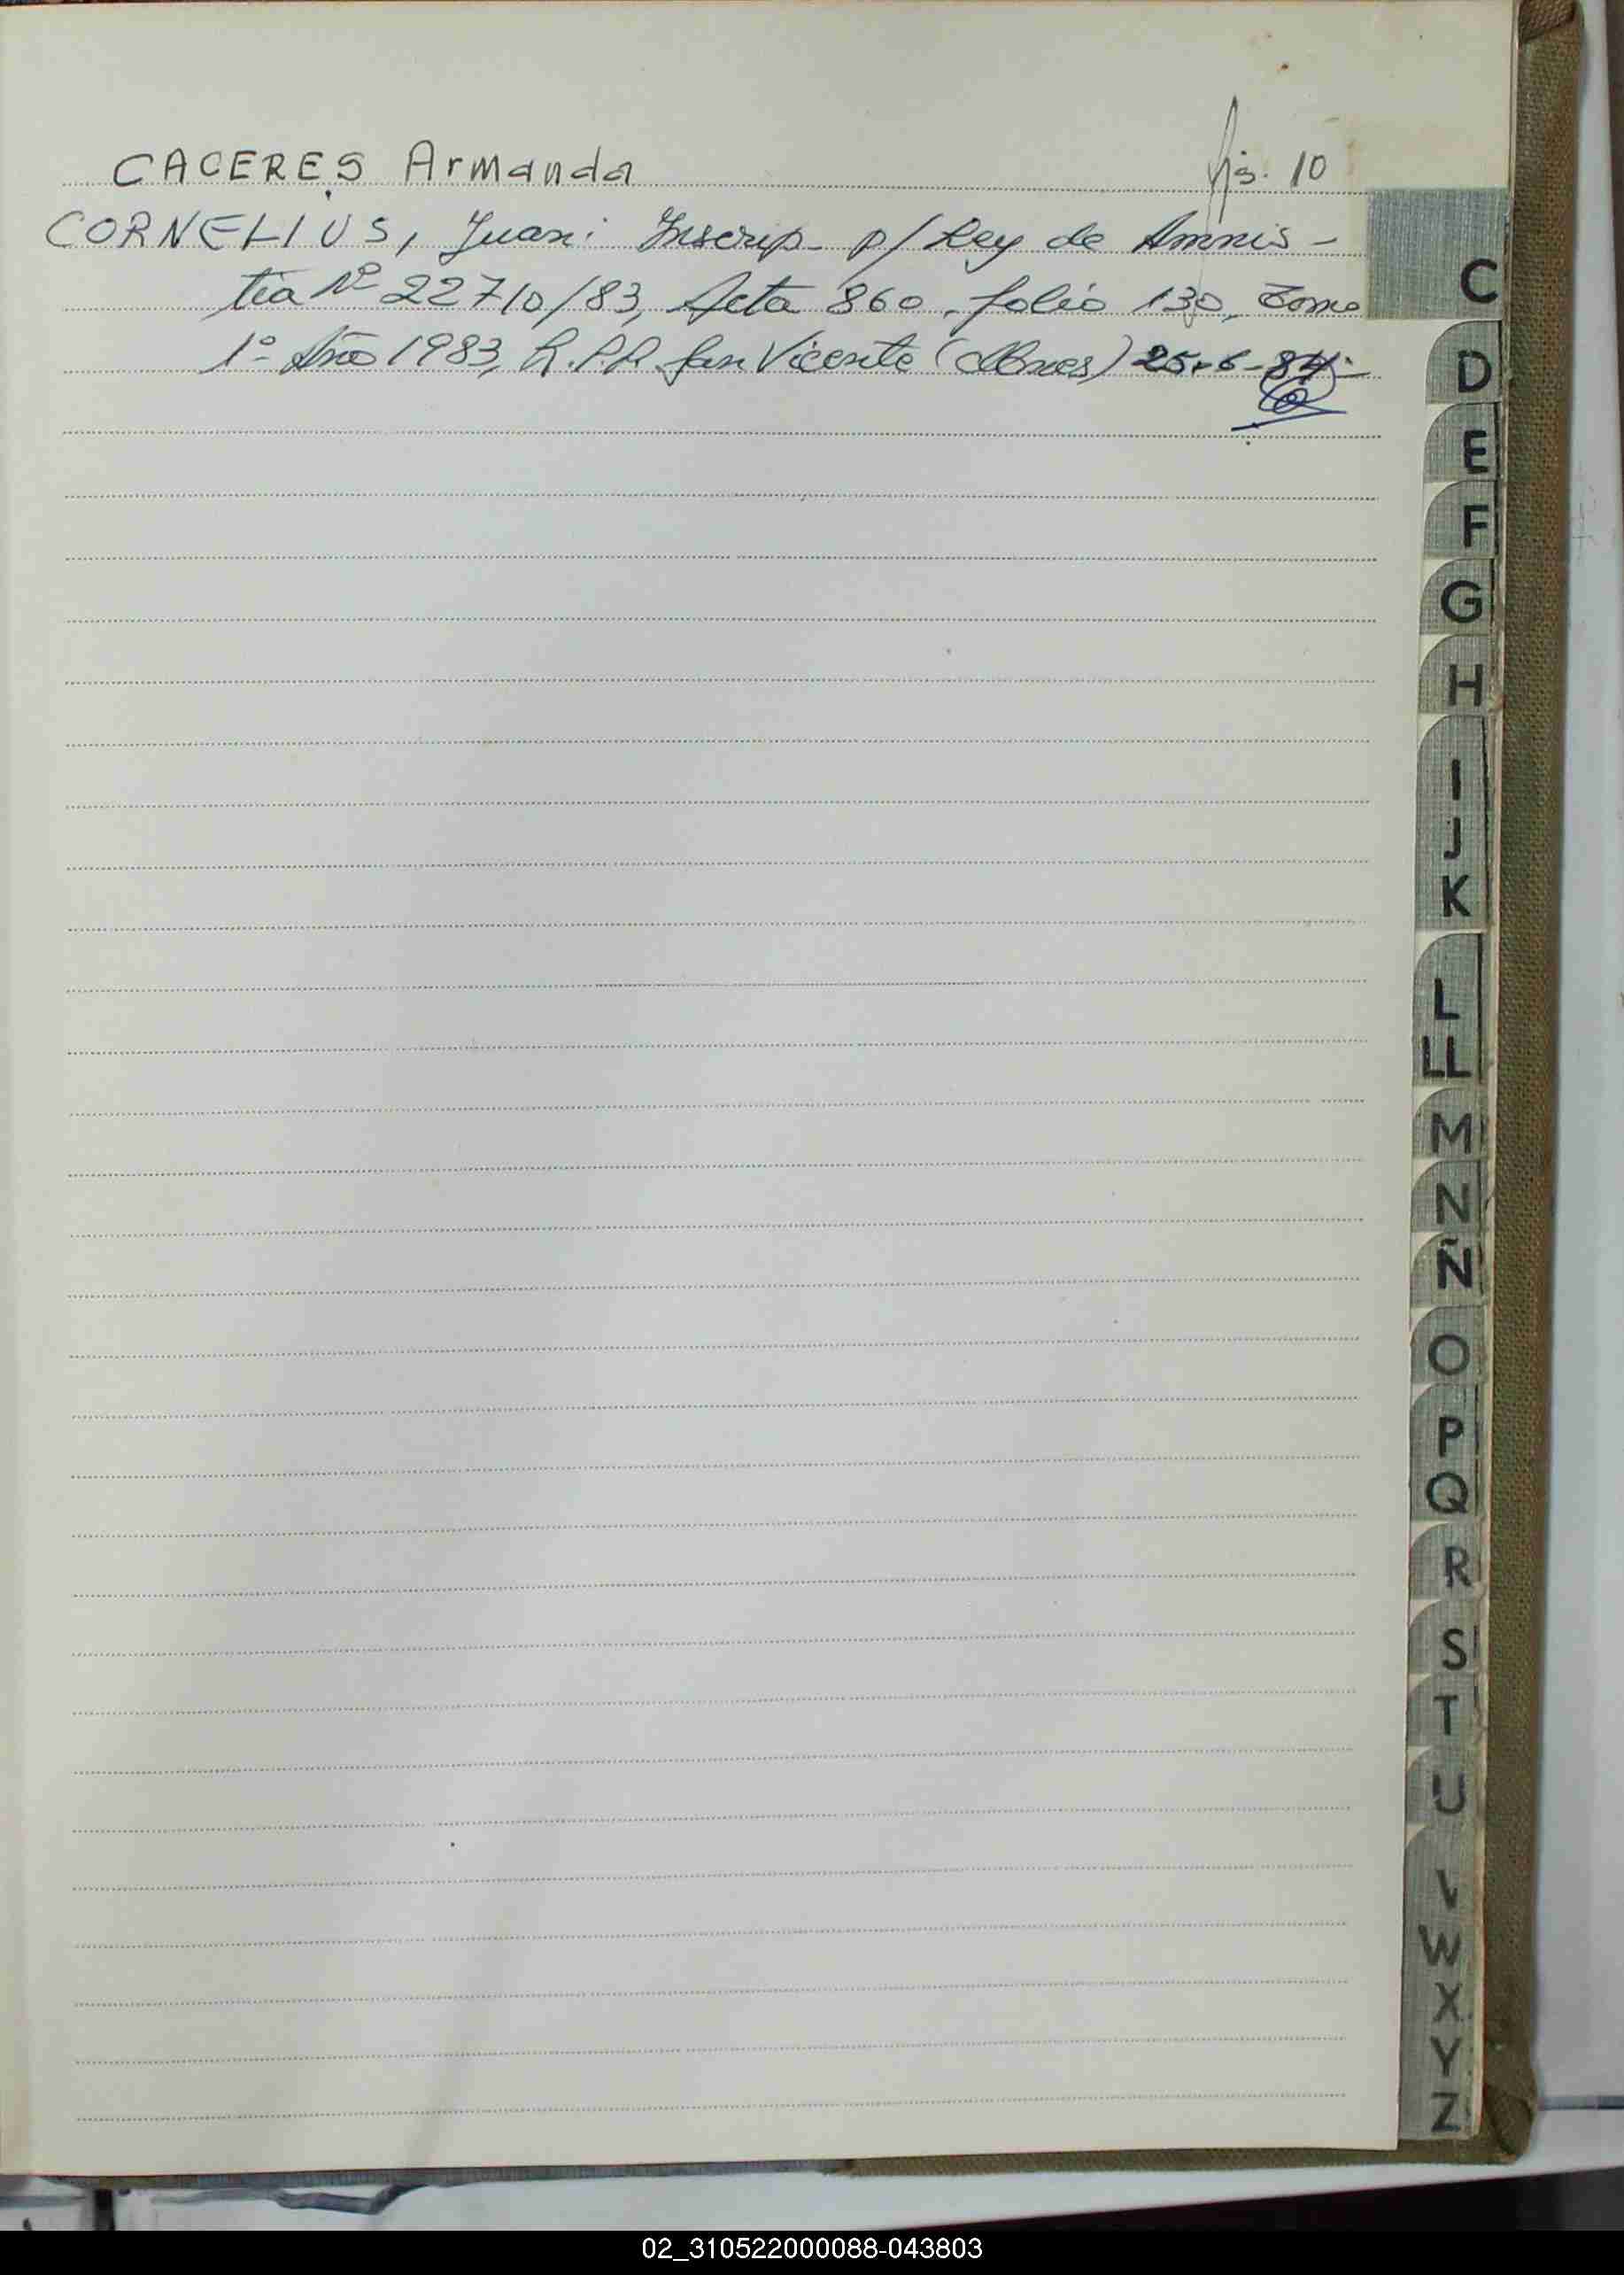 CACERES Armanda fjs. 10
CORNELIUS, Juan: Inscrip- p/ Ley de Amnis-
tia Nº 22710/83, Acta 860, folio 130, Tomo
1º Año 1983, R.P.P. San Vicente (Mnes) 25-6-84.-
C
D
E
F
G
H
I
J
K
L
LL
M
N
Ñ
O
P
Q
R
S
T
U
V
W
X
Y
Z
02_310522000088-043803